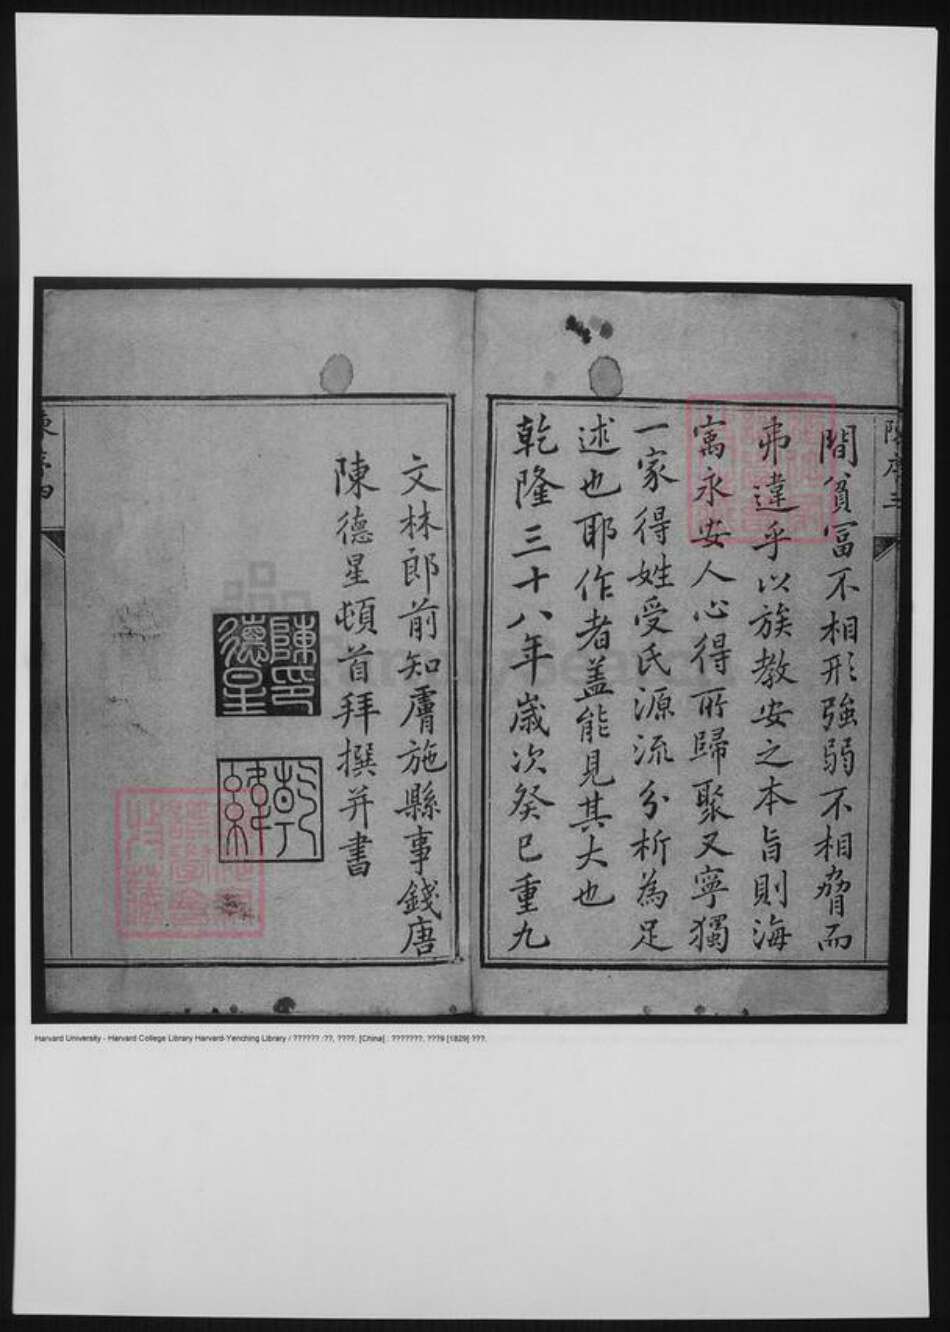 陳序三
間貧富不相形強弱不相脅而
弗違乎以族教安之本旨則海
寓永安人心得所歸聚又寧獨
一家得姓受氏源流分析為足
述也耶作者蓋能見其大也
乾隆三十八年歲次癸巳重九
文林郎前知膚施縣事錢唐
陳德星頓首拜撰并書
陳印德星
陳序四
Harvard University - Harvard College Library Harvard-Yenching Library / ?????? :??, ????. [China] : ???????, ???9 [1829] ???.